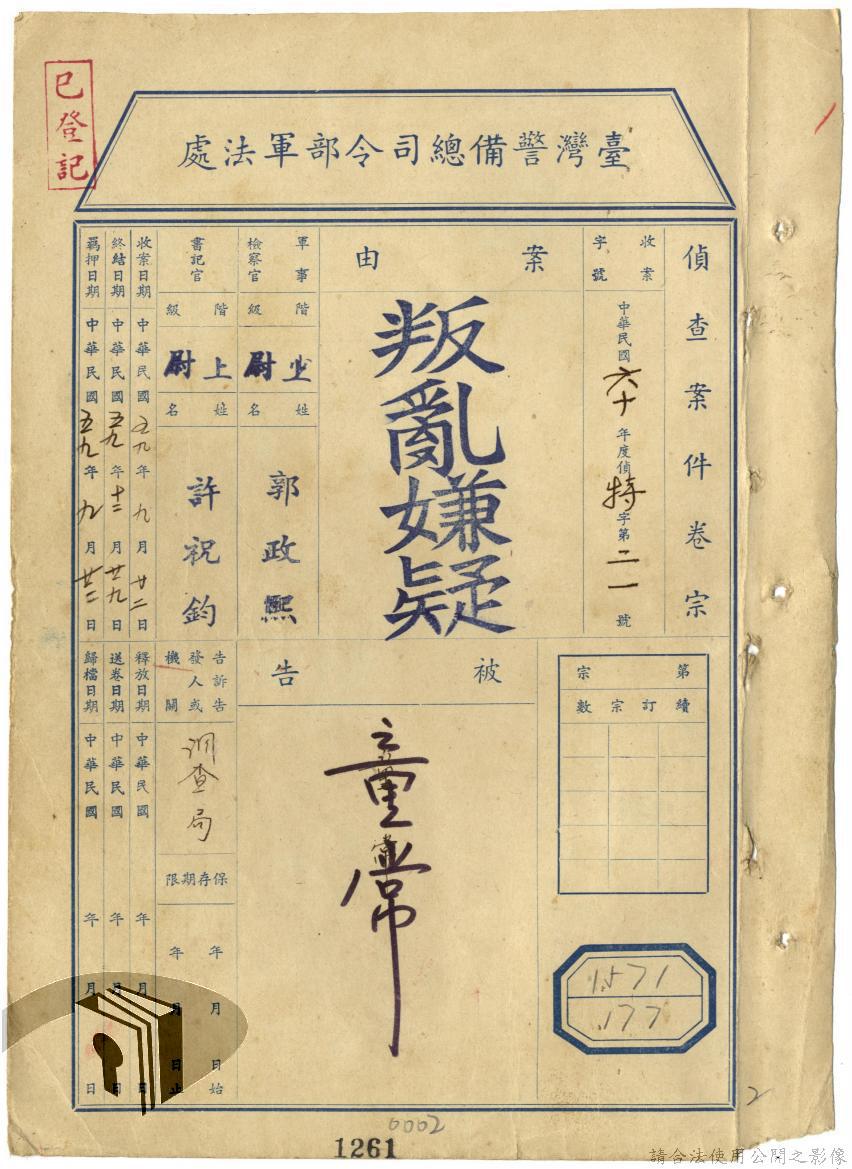 已登記
臺灣警備總司令部軍法處
偵查案件卷宗
收案字號
中華民國六十年度偵特字第二一號
案由
叛亂嫌疑
軍事檢察官
階級
上尉
姓名
郭政熙
書記官
階級
上尉
姓名
許祝鈞
收案日期 中華民國五九年九月廿二日
終結日期 中華民國五九年十二月廿九日
羈押日期 中華民國五九年九月廿二日
第宗
續訂宗數
1571
177
被告
童常
告訴告發人或機關
調查局
保存期限
年月日始
年月日止
釋放日期 中華民國年月日
送卷日期 中華民國年月日
歸檔日期 中華民國年月日
2
0002
1261
請合法使用公開之影像